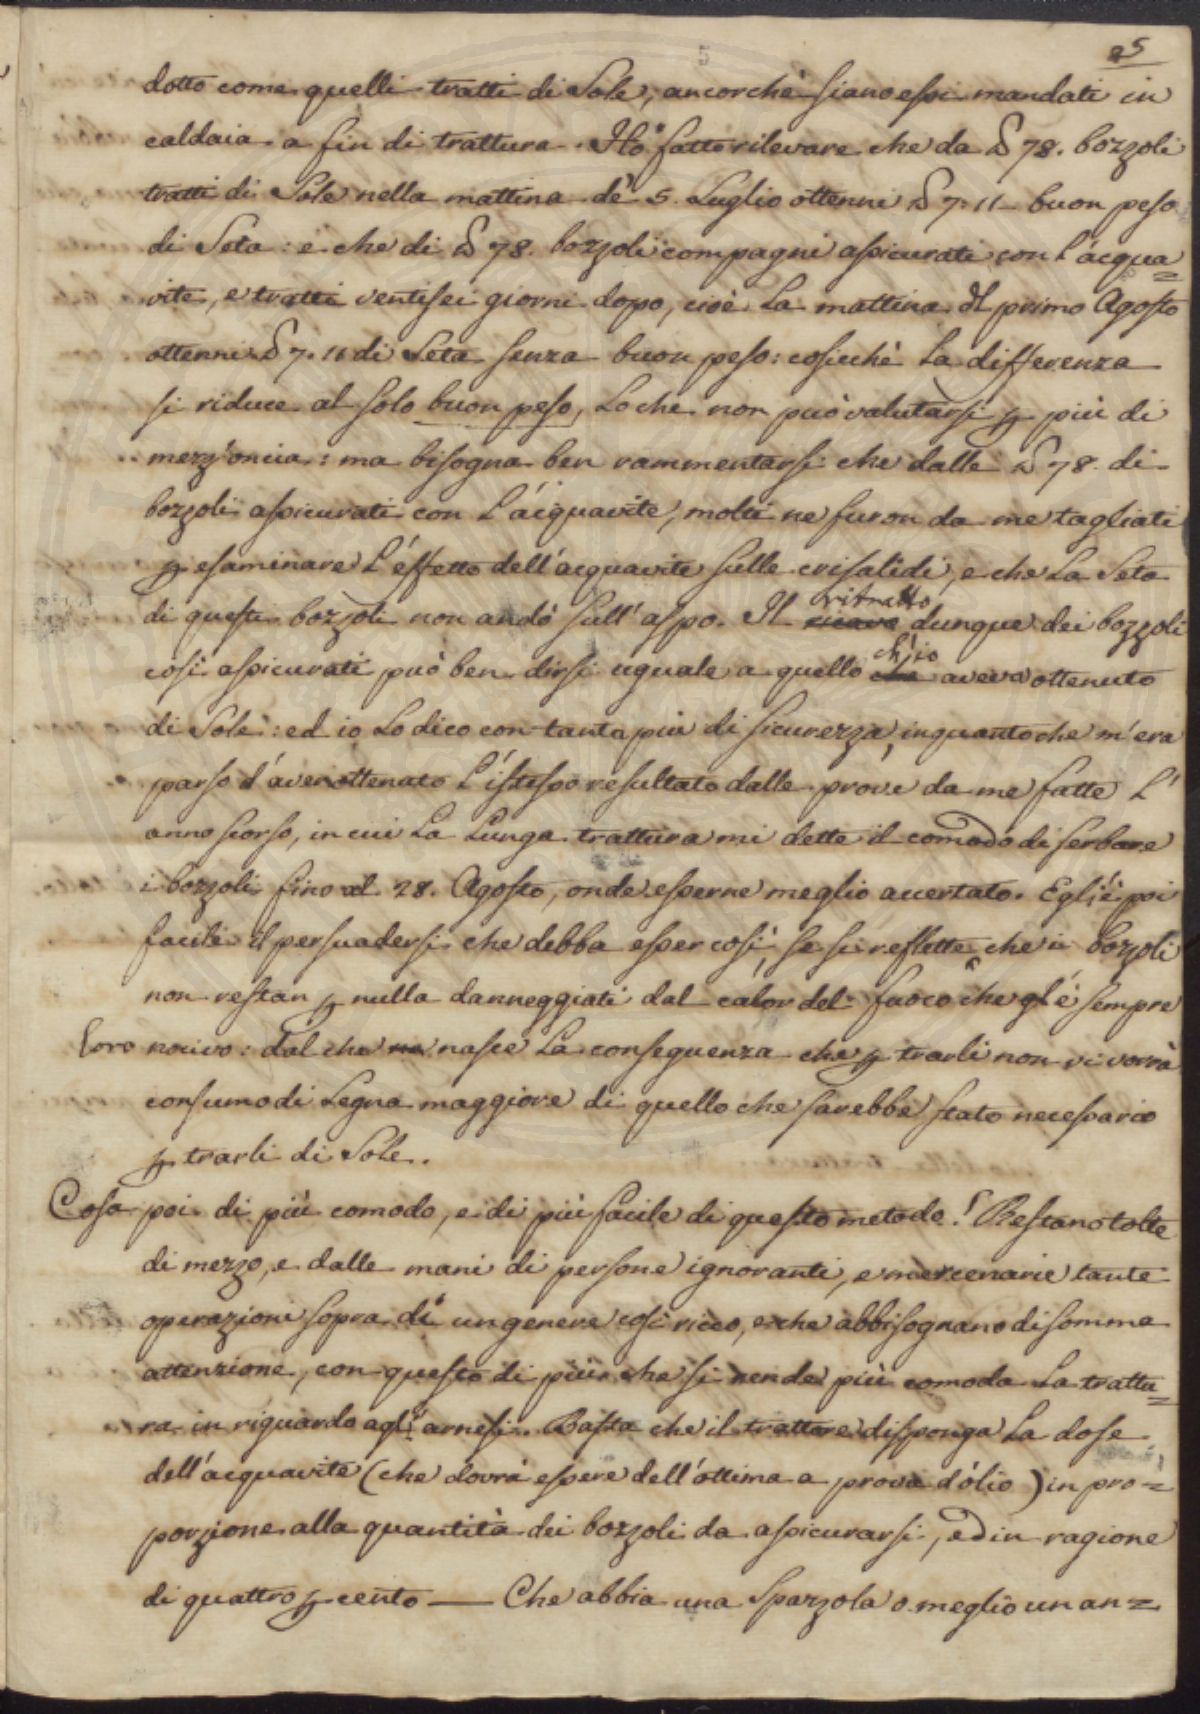 5
25
dotto come quelli tratti di Sole, ancorchè siano essi mandati in
caldaia a fin di trattura. Hò fatto rilevare che da ₶ 78. bozzoli
tratti di Sole nella mattina de' 5. Luglio ottenni ₶ 7. 11 buon peso
di Seta: e che di ₶ 78. bozzoli compagni assicurati con l'acqua=
vite, e tratti ventisei giorni dopo, cioè la mattina del primo Agosto
ottenni ₶ 7. 11 di Seta senza buon peso: cosicchè la differenza
si riduce al solo buon peso, Loche non può valutarsi ꝑ più di
mezz'oncia: ma bisogna ben rammentarsi che dalle ₶ 78. di
bozzoli assicurati con l'acquavite, molti ne furon da me tagliati
ꝑ esaminare l'effetto dell'acquavite sulle crisalidi, e che la Seta
di questi bozzoli non andò sull'aspo. Il ritratto dunque dei bozzoli
così assicurati può ben dirsi uguale a quello ch'io aveva ottenuto
di Sole: ed io lo dico con tanta più di sicurezza, inquantoche m'era
parso d'aver ottenuto l'istesso resultato dalle prove da me fatte l'
anno scorso, in cui la lunga trattura mi dette il comodo di serbare
i bozzoli fino al 28. Agosto, onde esserne meglio accertato. Egli è poi
facile il persuadersi che debba esser così, se si reflette che i bozzoli
non restan ꝑ nulla danneggiati dal calor del fuoco che gl'è sempre
loro nocivo: dal che nasce la conseguenza che ꝑ trarli non vi vorrà
consumo di Legna maggiore di quello che sarebbe stato necessario
ꝑ trarli di Sole.
Cosa poi di più comodo, e di più facile di questo metodo! Restano tolte
di mezzo, e dalle mani di persone ignoranti, e mercenarie tante
operazioni sopra di un genere così ricco, e che abbisognano di somma
attenzione, con questo di più che si rende più comoda la trattu=
ra in riguardo agl'arnesi. Basta che il trattore disponga la dose
dell'acquavite (che dovrà essere dell'ottima a prova d'olio) in pro=
porzione alla quantità dei bozzoli da assicurarsi, ed in ragione
di quattro ꝑ cento — Che abbia una Spazzola o meglio un an=